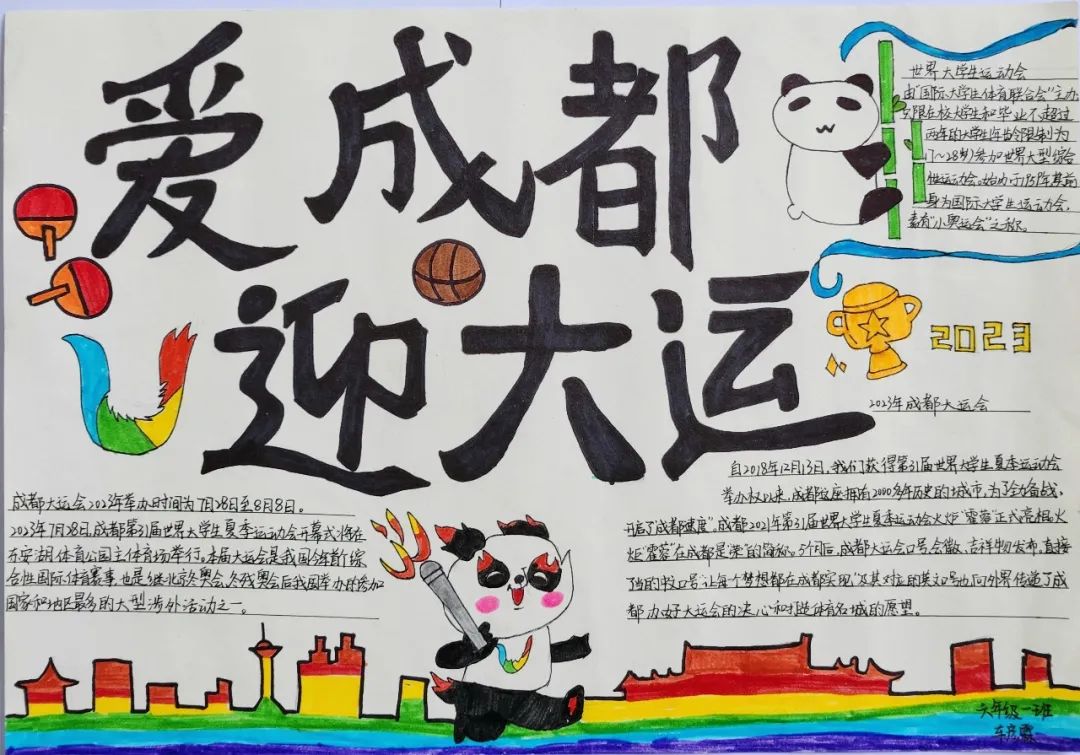 爱成都
迎大运
世界大学生运动会
由"国际大学生体育联合会"主办,
只限在校大学生和毕业不超过
两年的大学生(年龄限制为
17~28岁)参加世界大型综合
性运动会。始办于1959年,其前
身为国际大学生运动会,
素有"小奥运会"之称。
2023
2023年成都大运会
自2018年12月13日,我们获得第31届世界大学生夏季运动会
举办权以来,成都这座拥有2000多年历史的城市,为了全力备战,
开启了成都速度",成都2021年第31届世界大学生夏季运动会火炬"蓉火"正式亮相,火
炬"蓉火"在成都是"荣"的简称。5个月后,成都大运会口号、会徽、吉祥物发布,直接
了当的书口号让每个梦想都在成都实现"及其对应的英文口号也向外界传递了成
都办好大运会的决心和打造体育名城的愿望。
成都大运会2023年举办时间为7月28日至8月8日。
2023年7月28日,成都第31届世界大学生夏季运动会开幕式将在
东安湖体育公园主体育场举行,本届大运会是我国体育综
合性国际体育赛事,也是继北京冬奥会、冬残奥会后我国举办的参加
国家和地区最多的大型涉外活动之一。
六年级一班